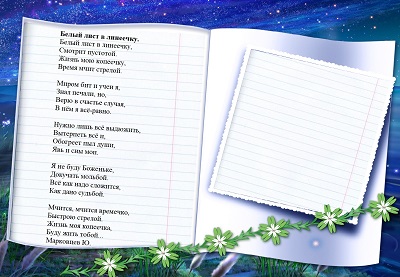 Белый лист в линеечку.
Белый лист в линеечку,
Смотрит пустотой.
Жизнь мою копеечку,
Время мчит стрелой.
Миром бит и учен я,
Знал печали, но,
Верю в счастье случая,
В нём я всё-равно.
Нужно лишь всё выдюжить,
Вытерпеть всё и,
Обогреет пыл души,
Явь и сны мои.
Я не буду Боженьке,
Докучать мольбой.
Всё как надо сложится,
Как дано судьбой.
Мчится, мчится времечко,
Быстрою стрелой.
Жизнь моя копеечка,
Буду жить тобой...
Марковцев Ю.